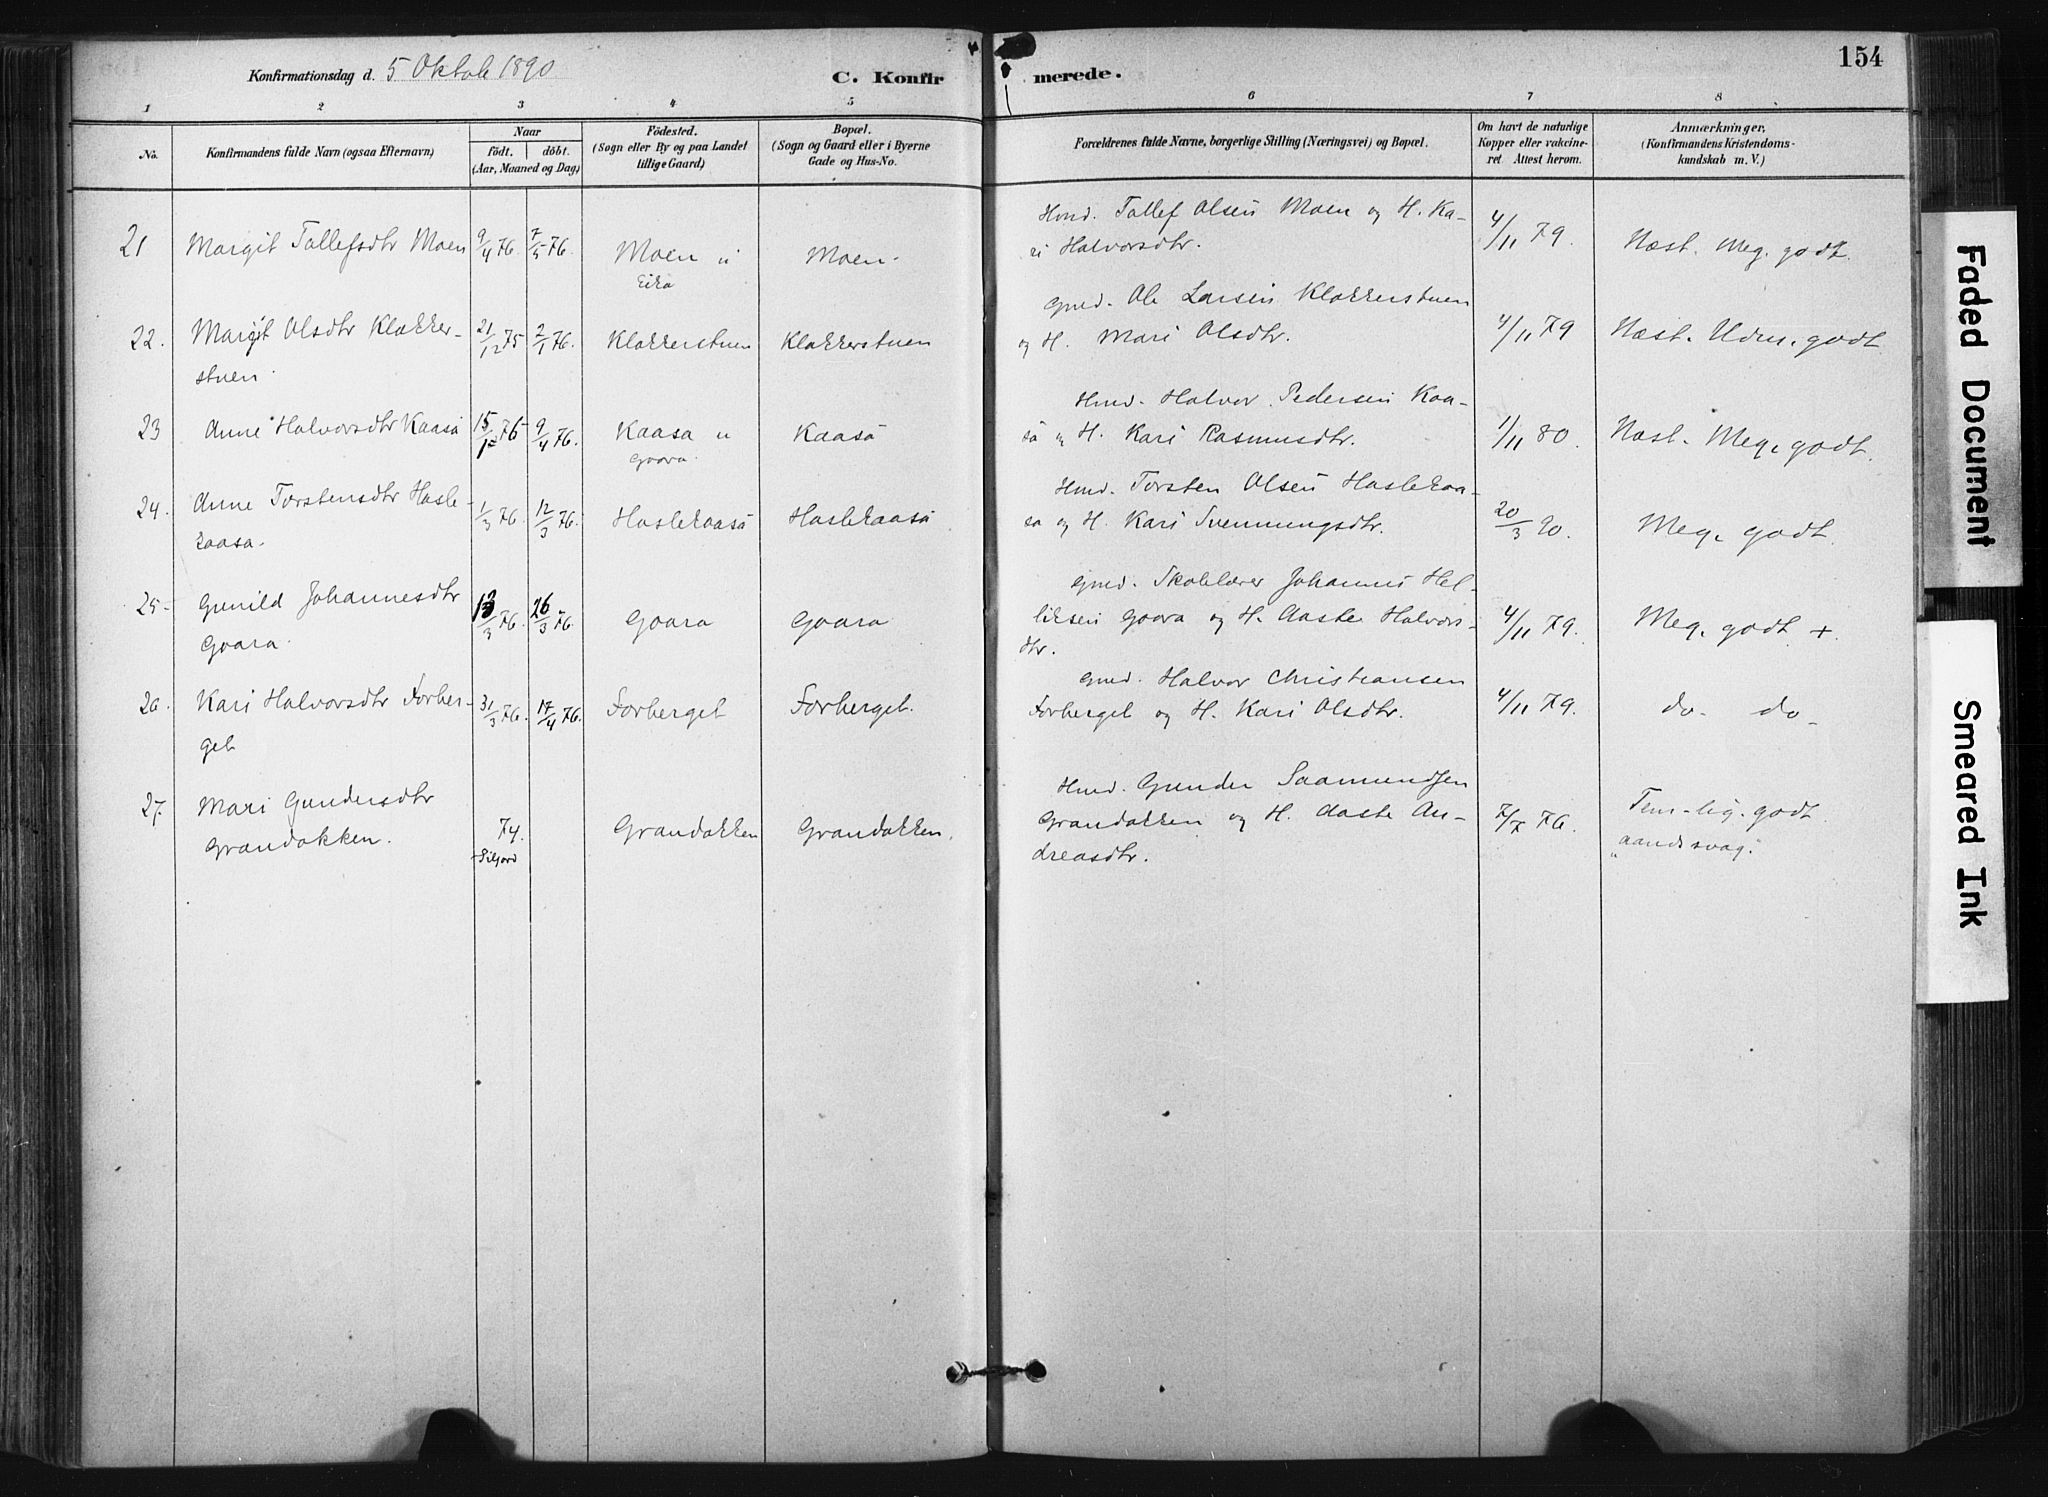 Konfirmationsdag d. 5 Oktob 1890
C. Konfir merede.
154
1 2 3 4 5 6 7 8
No.
Konfirmandens fulde Navn (ogsaa Efternavn)
Naar
födt. döbt.
(Aar, Maaned og Dag)
Födested.
(Sogn eller By og paa Landet
tillige Gaard)
Bopæl.
(Sogn og Gaard eller i Byerne
Gade og Hus-No.
Forældrenes fulde Navne, borgerlige Stilling (Næringsvei) og Bopæl.
Om havt de naturlige
Kopper eller vakcine-
ret Attest herom.
Anmærkninger,
(Konfirmandens Kristendoms-
kundskab m. V.)
21 Margit Tollefsdtr Moen 9/4 76. 7/5 76. Moen u Eika Moen.
Hmd. Tollef Olsen Moen og H. Ka-
ri Halvorsdtr. 4/11 79. Næst. Meg. godt.
22. Margit Olsdtr Klokker-
stuen. 21/12 75 2/1 76. Klokkerstuen Klokkerstuen
Gmd. Ole Larsen Klokkerstuen
og H. Mari Olsdtr. 4/11 79 Næst. Udm. godt
23 Anne Halvorsdtr Kaasa 76 9/4 76. Kaasa u Goara. Kaasa
Hmd. Halvor Pedersen Kaa-
sa og H. Kari Rasmusdtr. 1/11 80. Næst. Meg. godt.
24. Anne Torstensdtr Hasle-
kaasa. 1/3 76. 12/3 76. Haslekaasa Haslekaasa
Hmd. Torsten Olsen Haslekaa-
sa og H. Kari Svennungsdtr. 20/3 90. Meg. godt.
25- Gunild Johannesdtr
Goara. /3 76. 26/3 76. Goara Goara
Gmd. Skolelærer Johannes Hel-
liksen Goara og H. Aaste Halvors-
dtr. 4/11 79. Meg. godt +.
26. Kari Halvorsdtr Forber-
get 31/3 76. 17/4 76. Forberget Forberget.
Gmd. Halvor Christiansen
Forberget og H. Kari Olsdtr. 4/11 79. do. do.
27. Mari Gundersdtr
Grandokken. 74. Siljord Grandokken Grandokken.
Hmd. Gunder Saamundsen
Grandokken og H. Aaste An-
dreasdtr. 7/7 76. Tem-lig. godt
"aandssvag."
Faded Document
Smeared Ink